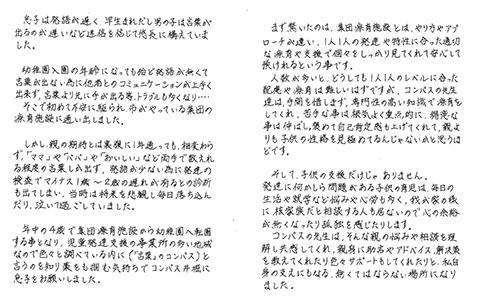 息子は発語が遅く、早生まれだし男の子は言葉が
出るのが遅いなど迷信を信じて悠長に構えていま
した。
幼稚園入園の年齢になっても殆ど発語が無くて
言葉が出ない為に他者とのコミュニケーションが上手く
出来ず、言葉より先に手が出る等、トラブルも多くなり…
そこで初めて不安に駆られ、市がやっている集団の
療育施設に通い出しました。
しかし親の期待とは裏腹に1年通っても、相変わら
ず、「ママ」や「パパ」や「おいしい」など両手で数えれ
る程度の言葉しか出ず、発語が少ない為に発達の
検査でマイナス1歳～2歳の遅れが有るとの診断
も出てしまい、当時は将来を悲観し毎日落ち込ん
だり、泣いて過ごしていました。
年中の4歳で集団療育施設から幼稚園へ転園
する事となり、児童発達支援の事業所の多い地域
なので色々と調べている内に(「言葉」のコンパス)と
言うのを知り藁をも掴む気持ちでコンパス
息子をお願いしました。
まず驚いたのは、集団療育施設とは、やり方やアプ
ローチが違い、1人1人の発達や特性に合った適切
な療育や支援で個々をしっかり見てくれて安心して
預けれるという事です。
人数が多いと、どうしても1人1人のレベルに合った
配慮や療育は難しいはずですが、コンパスの先生
達は、手間を惜しまず、専門性の高い知識で療育を
してくれ、苦手な事は根気よく重点的に、得意な
事は伸ばし、褒めて自己肯定感も上げてくれて、親よ
りも子供の性格を見極めてるんじゃないかと思うほ
どです。
そして、子供の支援だけじゃありません。
発達に何かしら問題がある子供の育児は、毎日の
生活や就学など悩みや心労も多く、我が家の様
に、核家族だと相談する人も居ないので心の余裕
が無くなったり孤独を感じたりします。
コンパスの先生は、そんな親の悩みや相談を理
解し共感してくれ、親身に助言やアドバイス、解決策
を教えてくれたり色々サポートもしてくれたりと、私自
身の支えにもなる、無くてはならない場所になり
ました。